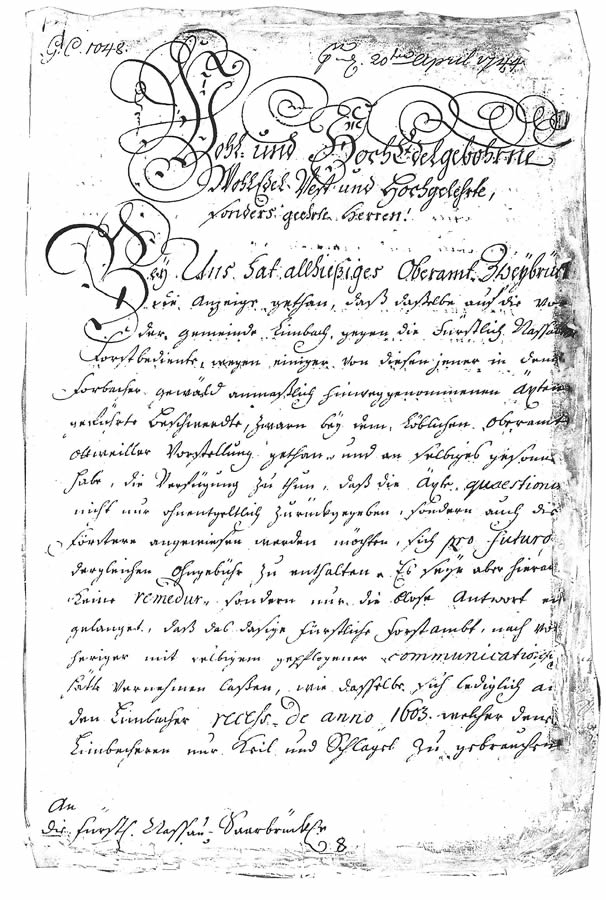 G.C. 1048.
20ten April 1744
Wohl- und HochEdelgebohrne
WohlEdel Vest und Hochgelehrte,
sonders geehrte Herren!
Bey Uns hat allhießiges Oberamt Zweybrück
die Anzeige gethan, daß dasselbe auf die von
der gemeinde Limbach, gegen die Fürstlich Nassau
Forstbediente, wegen einiger von diesen jener in dem
Forbacher gewäld anmaßlich hinweggenommenen Äxten
geführte Beschwerdte, zwarn bey dem löblichen Oberamt
Ottweiller Vorstellung gethan, und an selbiges gesonnen
habe, die Verfügung zu thun, daß die Äxte quaestionis
nicht nur ohnentgeltlich zurückgegeben, sondern auch die
Förstere angewiesen werden möchten, sich pro futuro
dergleichen Ohngebühr zu enthalten. Es seye aber hierauf
keine remedur, sondern nur die blose Antwort ein
gelanget, daß das dasige Fürstliche Forstambt, nach vor
heriger mit selbigem gepflogener communication, sich
hätte vernehmen laßen, wie dasselbe sich lediglich an
den Limbacher recess de anno 1603. welcher denen
Limbacheren nur Keil und Schlägel zu gebrauchen
An
die Fürstl. Nassau Saarbrück
8